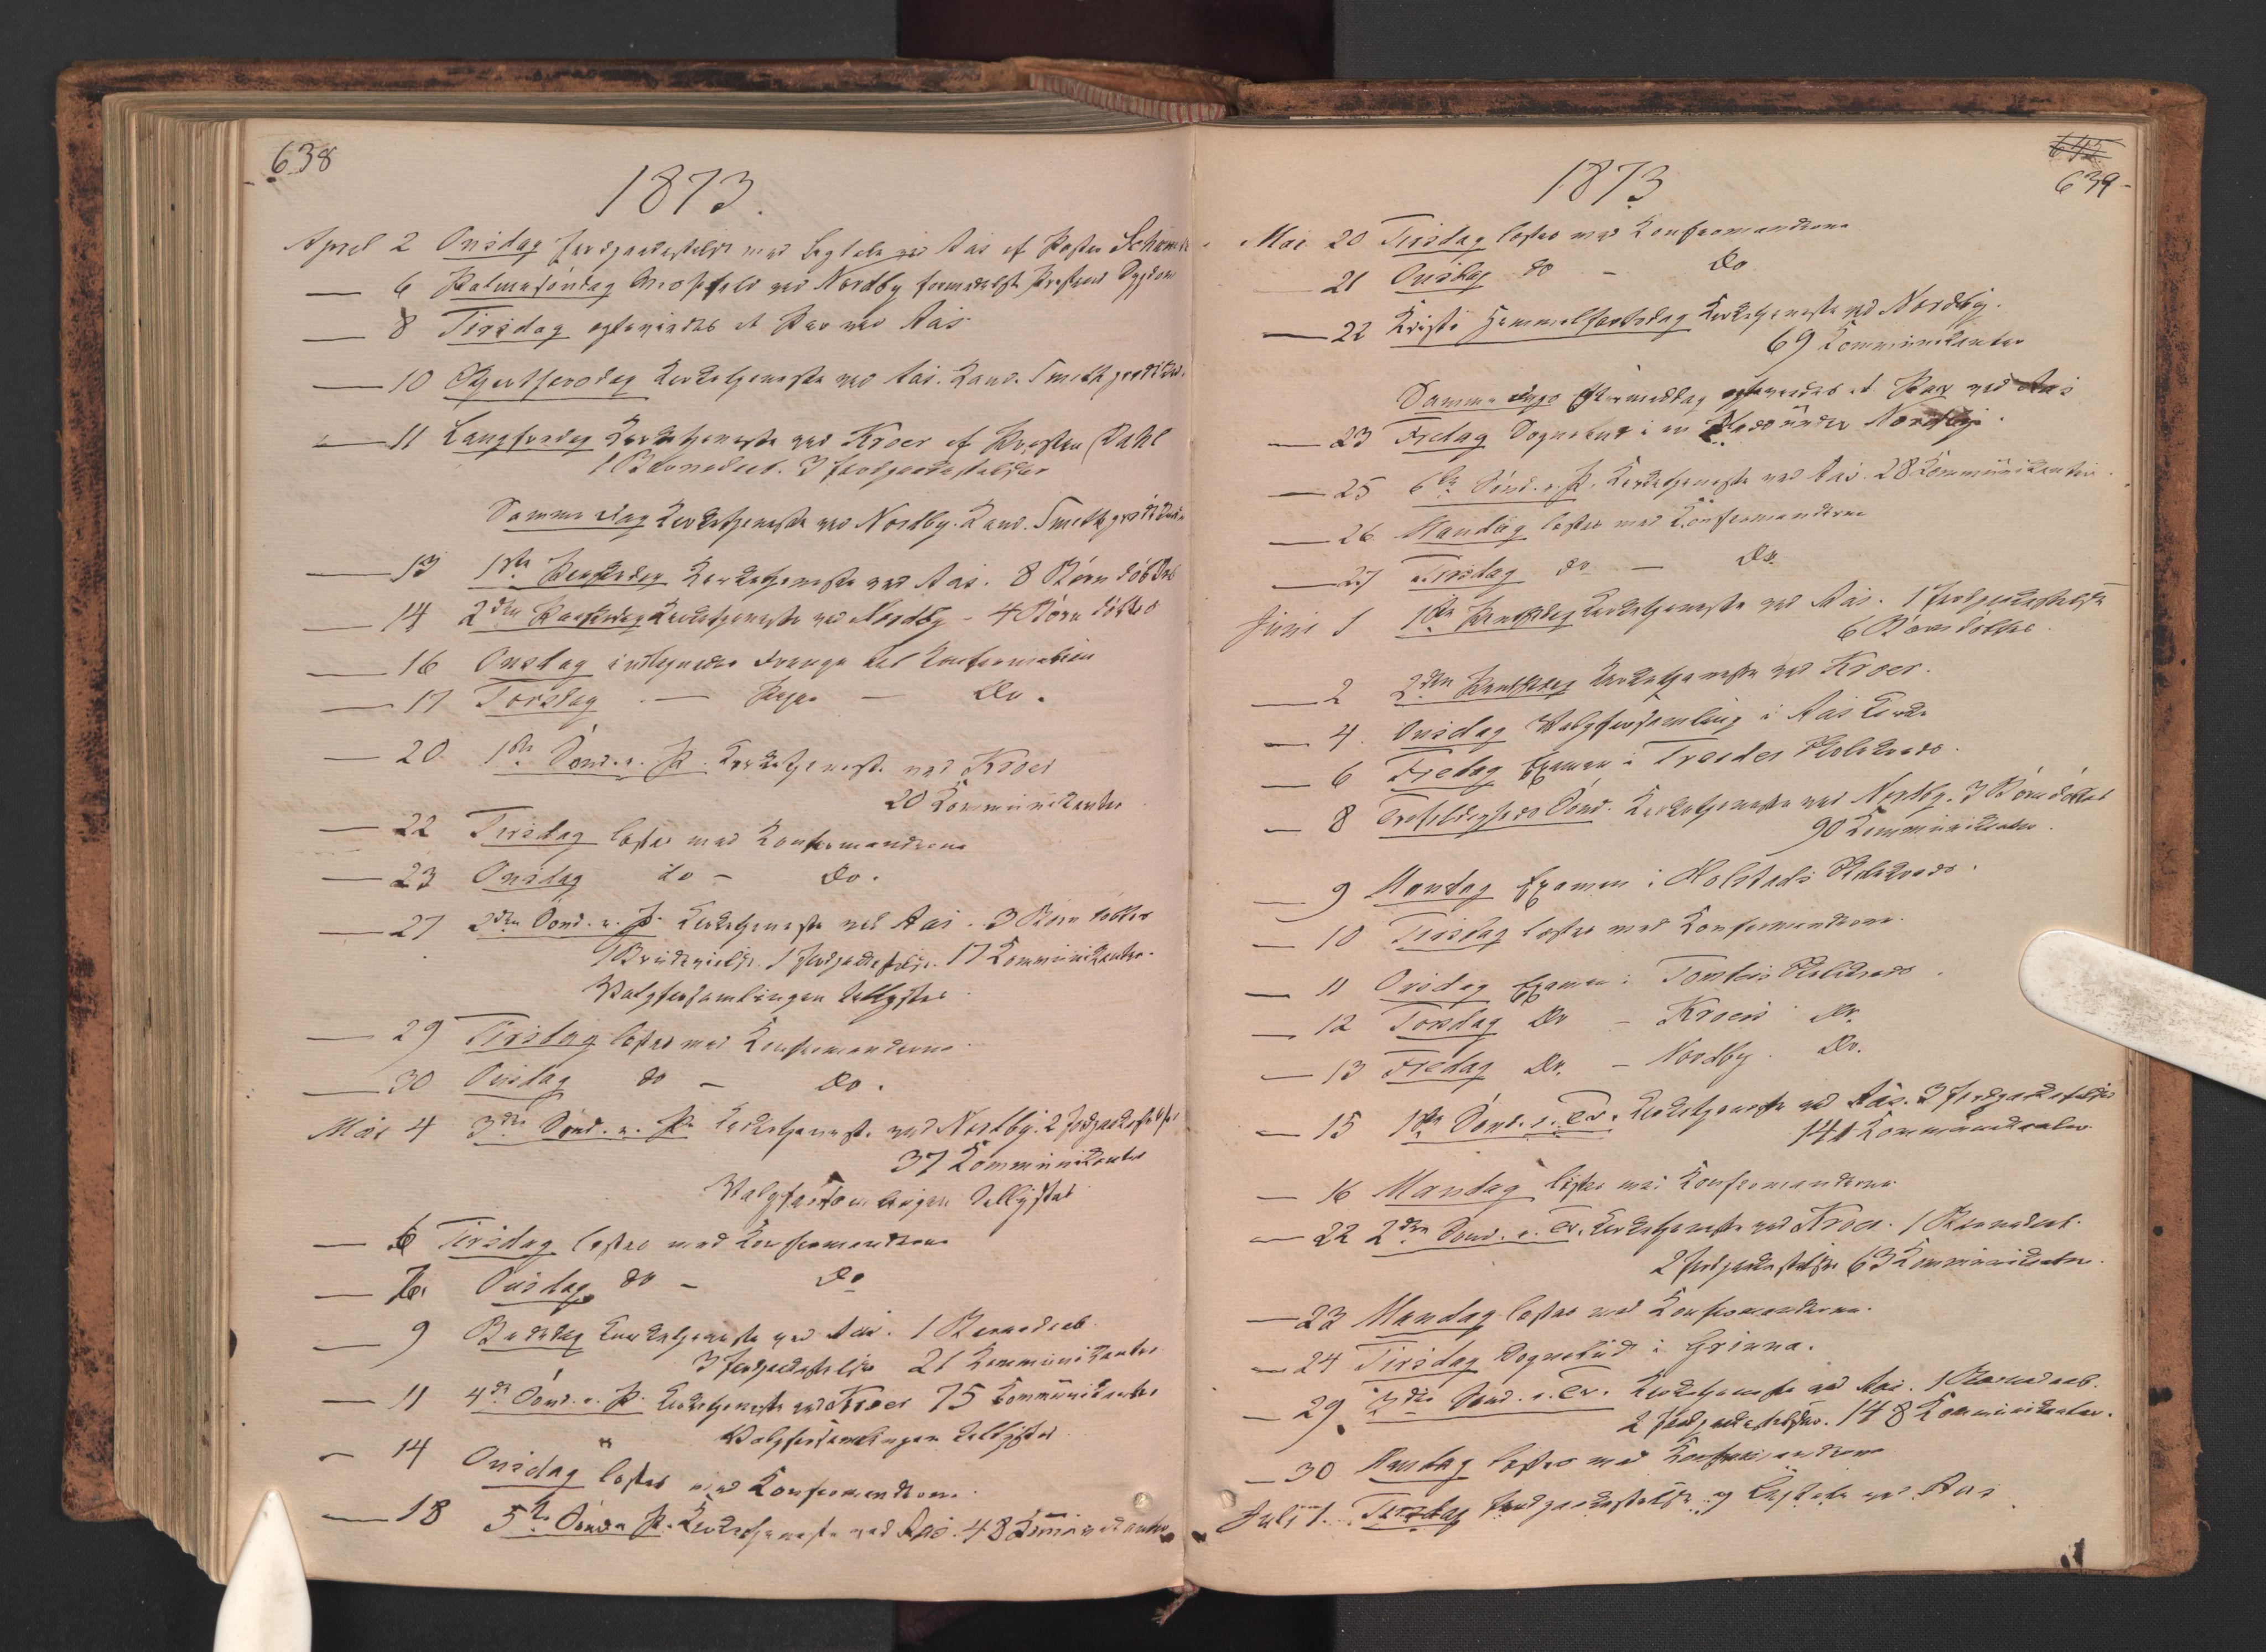 638
1873.
April 2 Onsdag Jordpaakastelse med Ligtale ved Aas af Pastor
— 6 Palmesøndag Messefald ved Nordby formedelst Præstens Sygdom
— 8 Tirsdag ægteviedes et Par ved Aas
— 10 Skjærthorsdag Kirketjeneste ved Aas. Kand. Smith prædikede.
— 11 Langfredag Kirketjeneste ved Kroer af Præsten Dahl
1 Barnedaab. 3 Jordpaakastelser
Samme Dag Kirketjeneste ved Nordby. Kand. Smith prædikede
— 13 1ste Paaskedag Kirketjeneste ved Aas. 8 Børn døbtes
— 14 2den Paaskedag Kirketjeneste ved Nordby - 4 Børn døbtes
— 16 Onsdag indtegnedes Drenge til Konfirmation
— 17 Torsdag — Piger — Do.
— 20 1ste Sønd. e. P. Kirketjeneste ved Kroer
20 Kommunikanter
— 22 Tirsdag læstes med Konfirmanderne
— 23 Onsdag do - Do.
— 27 2den Sønd. e. P. Kirketjeneste ved Aas. 3 Børn døbtes
1 Brudevielse. 1 Jordpaakastelse. 17 Kommunikanter.
Valgforsamlingen tillystes
— 29 Tirsdag læstes med Konfirmanderne
— 30 Onsdag do - Do.
Mai 4 3die Sønd. e. P. Kirketjeneste ved Nordby. 2 Jordpaakastelser
37 Kommunikanter
Valgforsamlingen tillystes
— 6 Tirsdag læstes med Konfirmanderne
— 7. Onsdag do - Do
— 9 Bededag Kirketjeneste ved Aas. 1 Barnedaab.
3 Jordpaakastelser 21 Kommunikanter
— 11 4de Sønd. e. P. Kirketjeneste ved Kroer 75 Kommunikanter
Valgforsamlingen tillystes
— 14 Onsdag læstes med Konfirmanderne.
— 18 5te Sønd. e. P. Kirketjeneste ved Aas. 48 Kommunikanter
639
1873
Mai 20 Tirsdag læstes med Konfirmanderne
— 21 Onsdag do - Do
— 22 Kristi Himmelfartsdag Kirketjeneste ved Nordby.
69 Kommunikanter
Samme Dags Eftermiddag ægteviedes et Par ved Aas
— 23 Fredag Sognebud i en Plads under Nordby.
— 25 6te Sønd. e. P. Kirketjeneste ved Aas. 28 Kommunikanter.
— 26 Mandag læstes med Konfirmanderne
— 27 Tirsdag do — Do.
Juni 1 1ste Pintsedag Kirketjeneste ved Aas. 1 Jordpaakastelse
6 Børn døbtes.
— 2 2den Pintsedag Kirketjeneste ved Kroer.
— 4. Onsdag Valgforsamling i Aas Kirke
— 6 Fredag Examen i Skolekreds.
— 8 Trefoldigheds Sønd. Kirketjeneste ved Nordby. 3 Børn døbtes
90 Kommunikanter.
— 9 Mandag Examen i Holstads Skolekreds.
— 10 Tirsdag læstes med Konfirmanderne.
— 11 Onsdag Examen i Skolekreds.
— 12 Torsdag Do - Kroers Do.
— 13 Fredag Do. - Nordby. Do.
— 15 1ste Sønd. e. Tr. Kirketjeneste ved Aas. 3 Jordpaakastelser
141 Kommunikanter
— 16 Mandag læstes med Konfirmanderne
— 22 2den Sønd. e. Tr. Kirketjeneste ved Kroer. 1 Barnedaab.
2 Jordpaakastelser 63 Kommunikanter.
— 23 Mandag læstes med Konfirmanderne.
— 24 Tirsdag Sognebud i
— 29 3die Sønd. e. Tr. Kirketjeneste ved Aas. 1 Barnedaab.
2 Jordpaakastelser. 148 Kommunikanter.
— 30 Mandag læstes med Konfirmanderne
Juli 1. Tirsdag Jordpaakastelse og Ligtale ved Aas